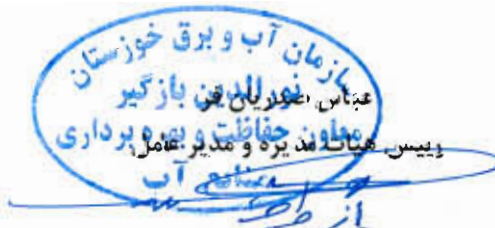 سازمان آب و برق خوزستان
نورالدین بازگیر
معاون حفاظت و بهره برداری
منابع آب
عباس صدریان فر
رییس هیات مدیره و مدیر عامل
از طرف